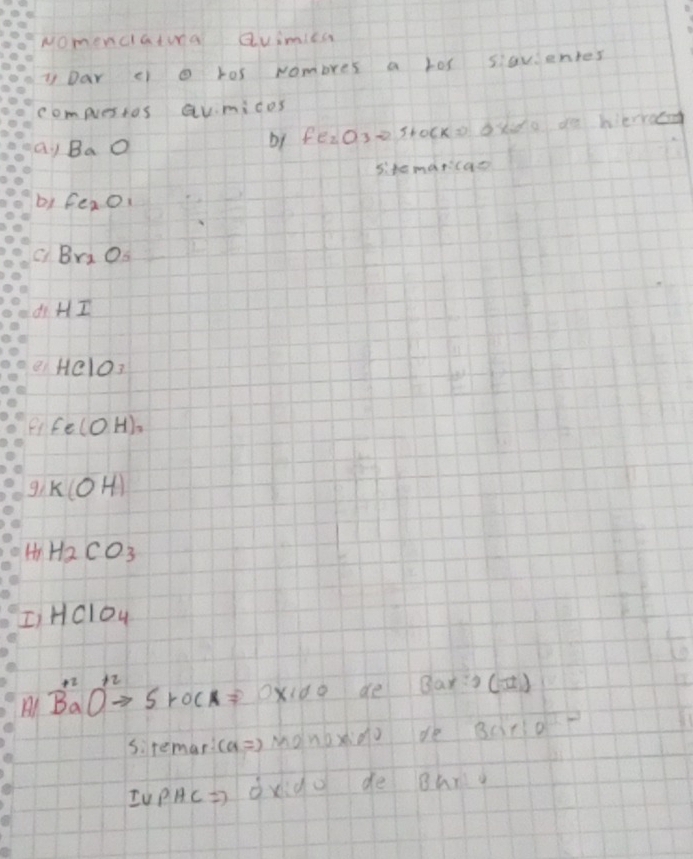 Nomenclatura Quimica
1) Dar el o los Nombres a los siguientes
compuestos Quimicos
a) BaO
b) Fe2O3 => Stock => óxido de hierro
Sitematica =>
b) Fe2O3
c) Br2O5
d) HI
e) HClO3
f) Fe(OH)3
g) K(OH)
H) H2CO3
I) HClO4
+2 +2
A) BaO → Stock => Oxido de Bario (II)
Sitematica => Monoxido de Bario
IUPAC => óxido de Bario